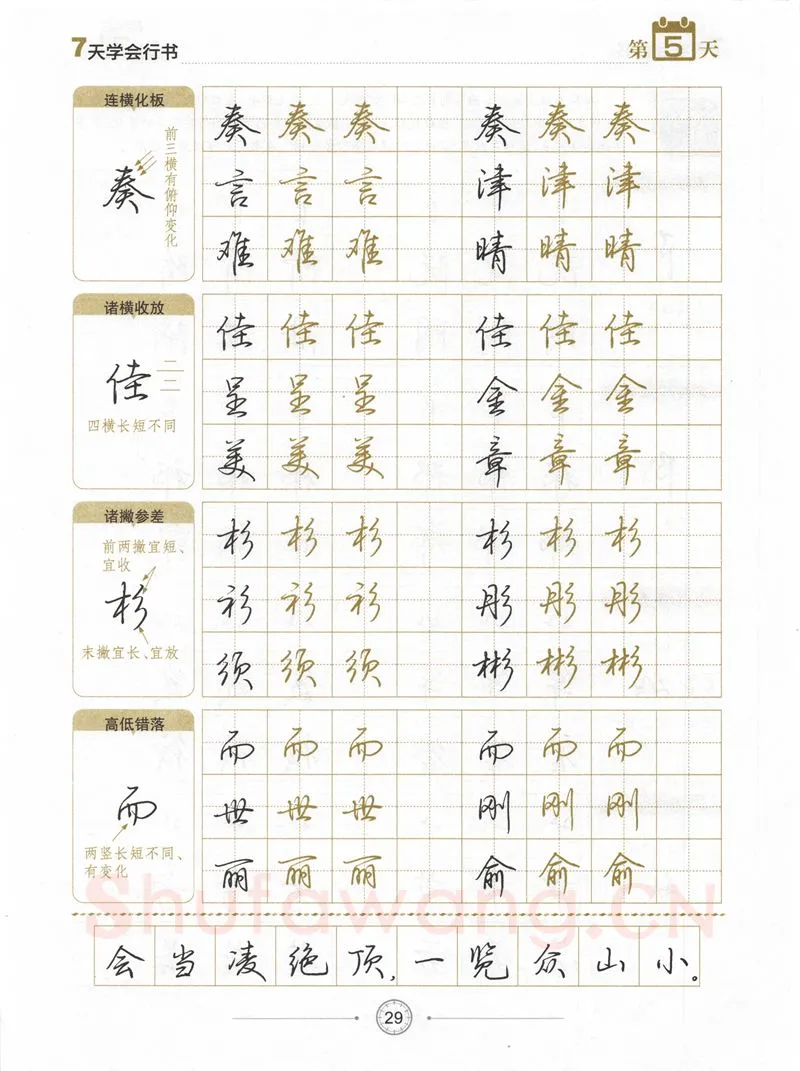 7天学会行书
第5天
连横化板
前三横有俯仰变化
奏
奏奏奏 奏奏奏
言言言 津津津
难难难 晴晴晴
诸横收放
佳
四横长短不同
佳佳佳 佳佳佳
呈呈呈 金金金
美美美 章章章
诸撇参差
前两撇宜短、
宜收
杉
末撇宜长、宜放
杉杉杉 杉杉杉
衫衫衫 彤彤彤
须须须 彬彬彬
高低错落
而
两竖长短不同、
有变化
而而而 而而而
世世世 刚刚刚
丽丽丽 俞俞俞
Shufawang.CN
会当凌绝顶,一览众山小。
29